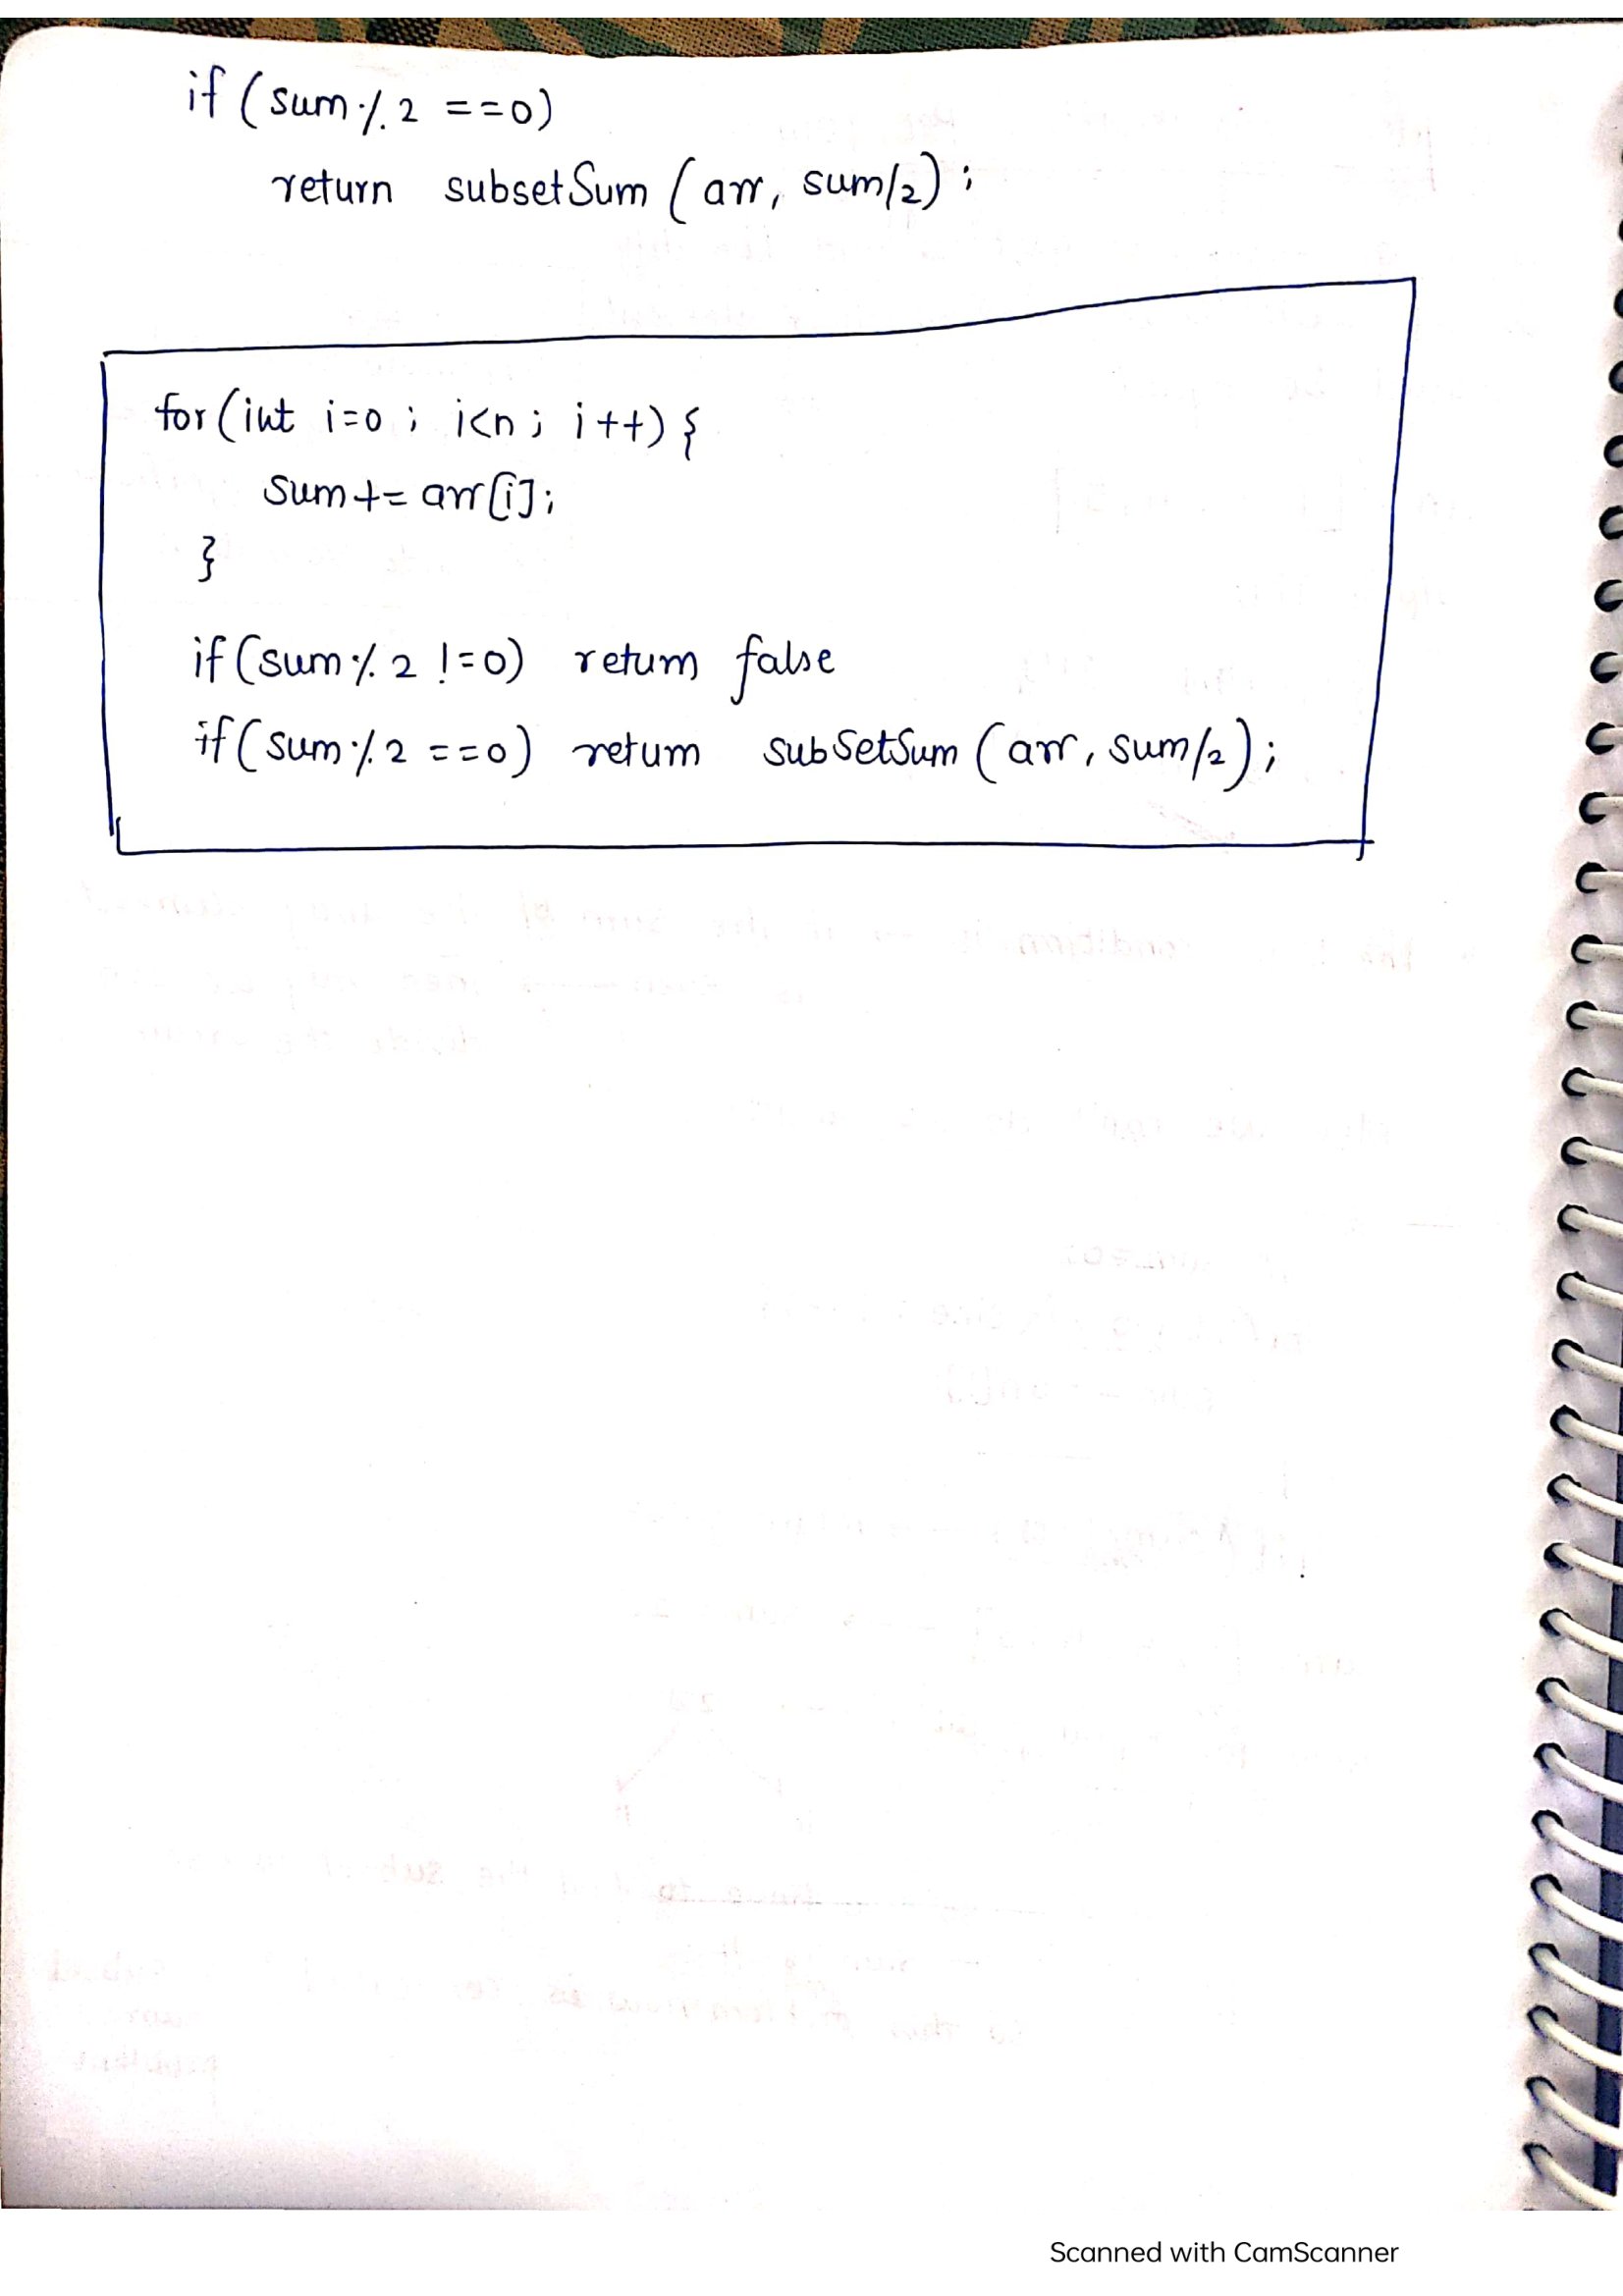 if (sum % 2 ==0)
return subsetSum (arr, sum/2);
for(int i=0; i<n; i++) {
sum += arr[i];
}
if (sum % 2 !=0) return false
if (sum % 2 ==0) return subSetSum (arr, sum/2);
Scanned with CamScanner